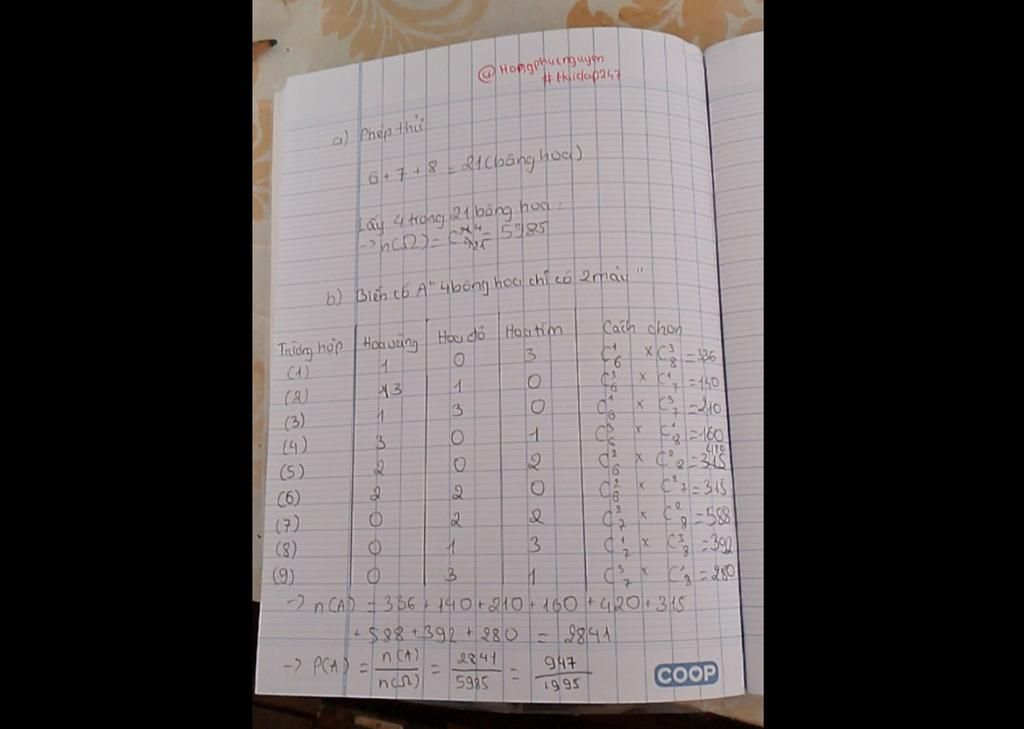 @Hongphucnguyen
#Hoidap247
a) Phép thử
6 + 7 + 8 = 21 (bông hoa)
Lấy 4 trong 21 bông hoa :
→ n(Ω) = C⁴₂₁ = 5985
b) Biến cố A " 4 bông hoa chỉ có 2 màu "
Trường hợp Hoa vàng Hoa đỏ Hoa tím Cách chọn
(1) 1 0 3 C¹₆ × C³₈ = 336
(2) 3 1 0 C³₆ × C¹₇ = 140
(3) 1 3 0 C¹₆ × C³₇ = 210
(4) 3 0 1 C³₆ × C¹₈ = 160
(5) 2 0 2 C²₆ × C²₈ = 420
(6) 2 2 0 C²₆ × C²₇ = 315
(7) 0 2 2 C²₇ × C²₈ = 588
(8) 0 1 3 C¹₇ × C³₈ = 392
(9) 0 3 1 C³₇ × C¹₈ = 280
→ n(A) = 336 + 140 + 210 + 160 + 420 + 315
+ 588 + 392 + 280 = 2841
→ P(A) = n(A)/n(Ω) = 2841/5985 = 947/1995
COOP